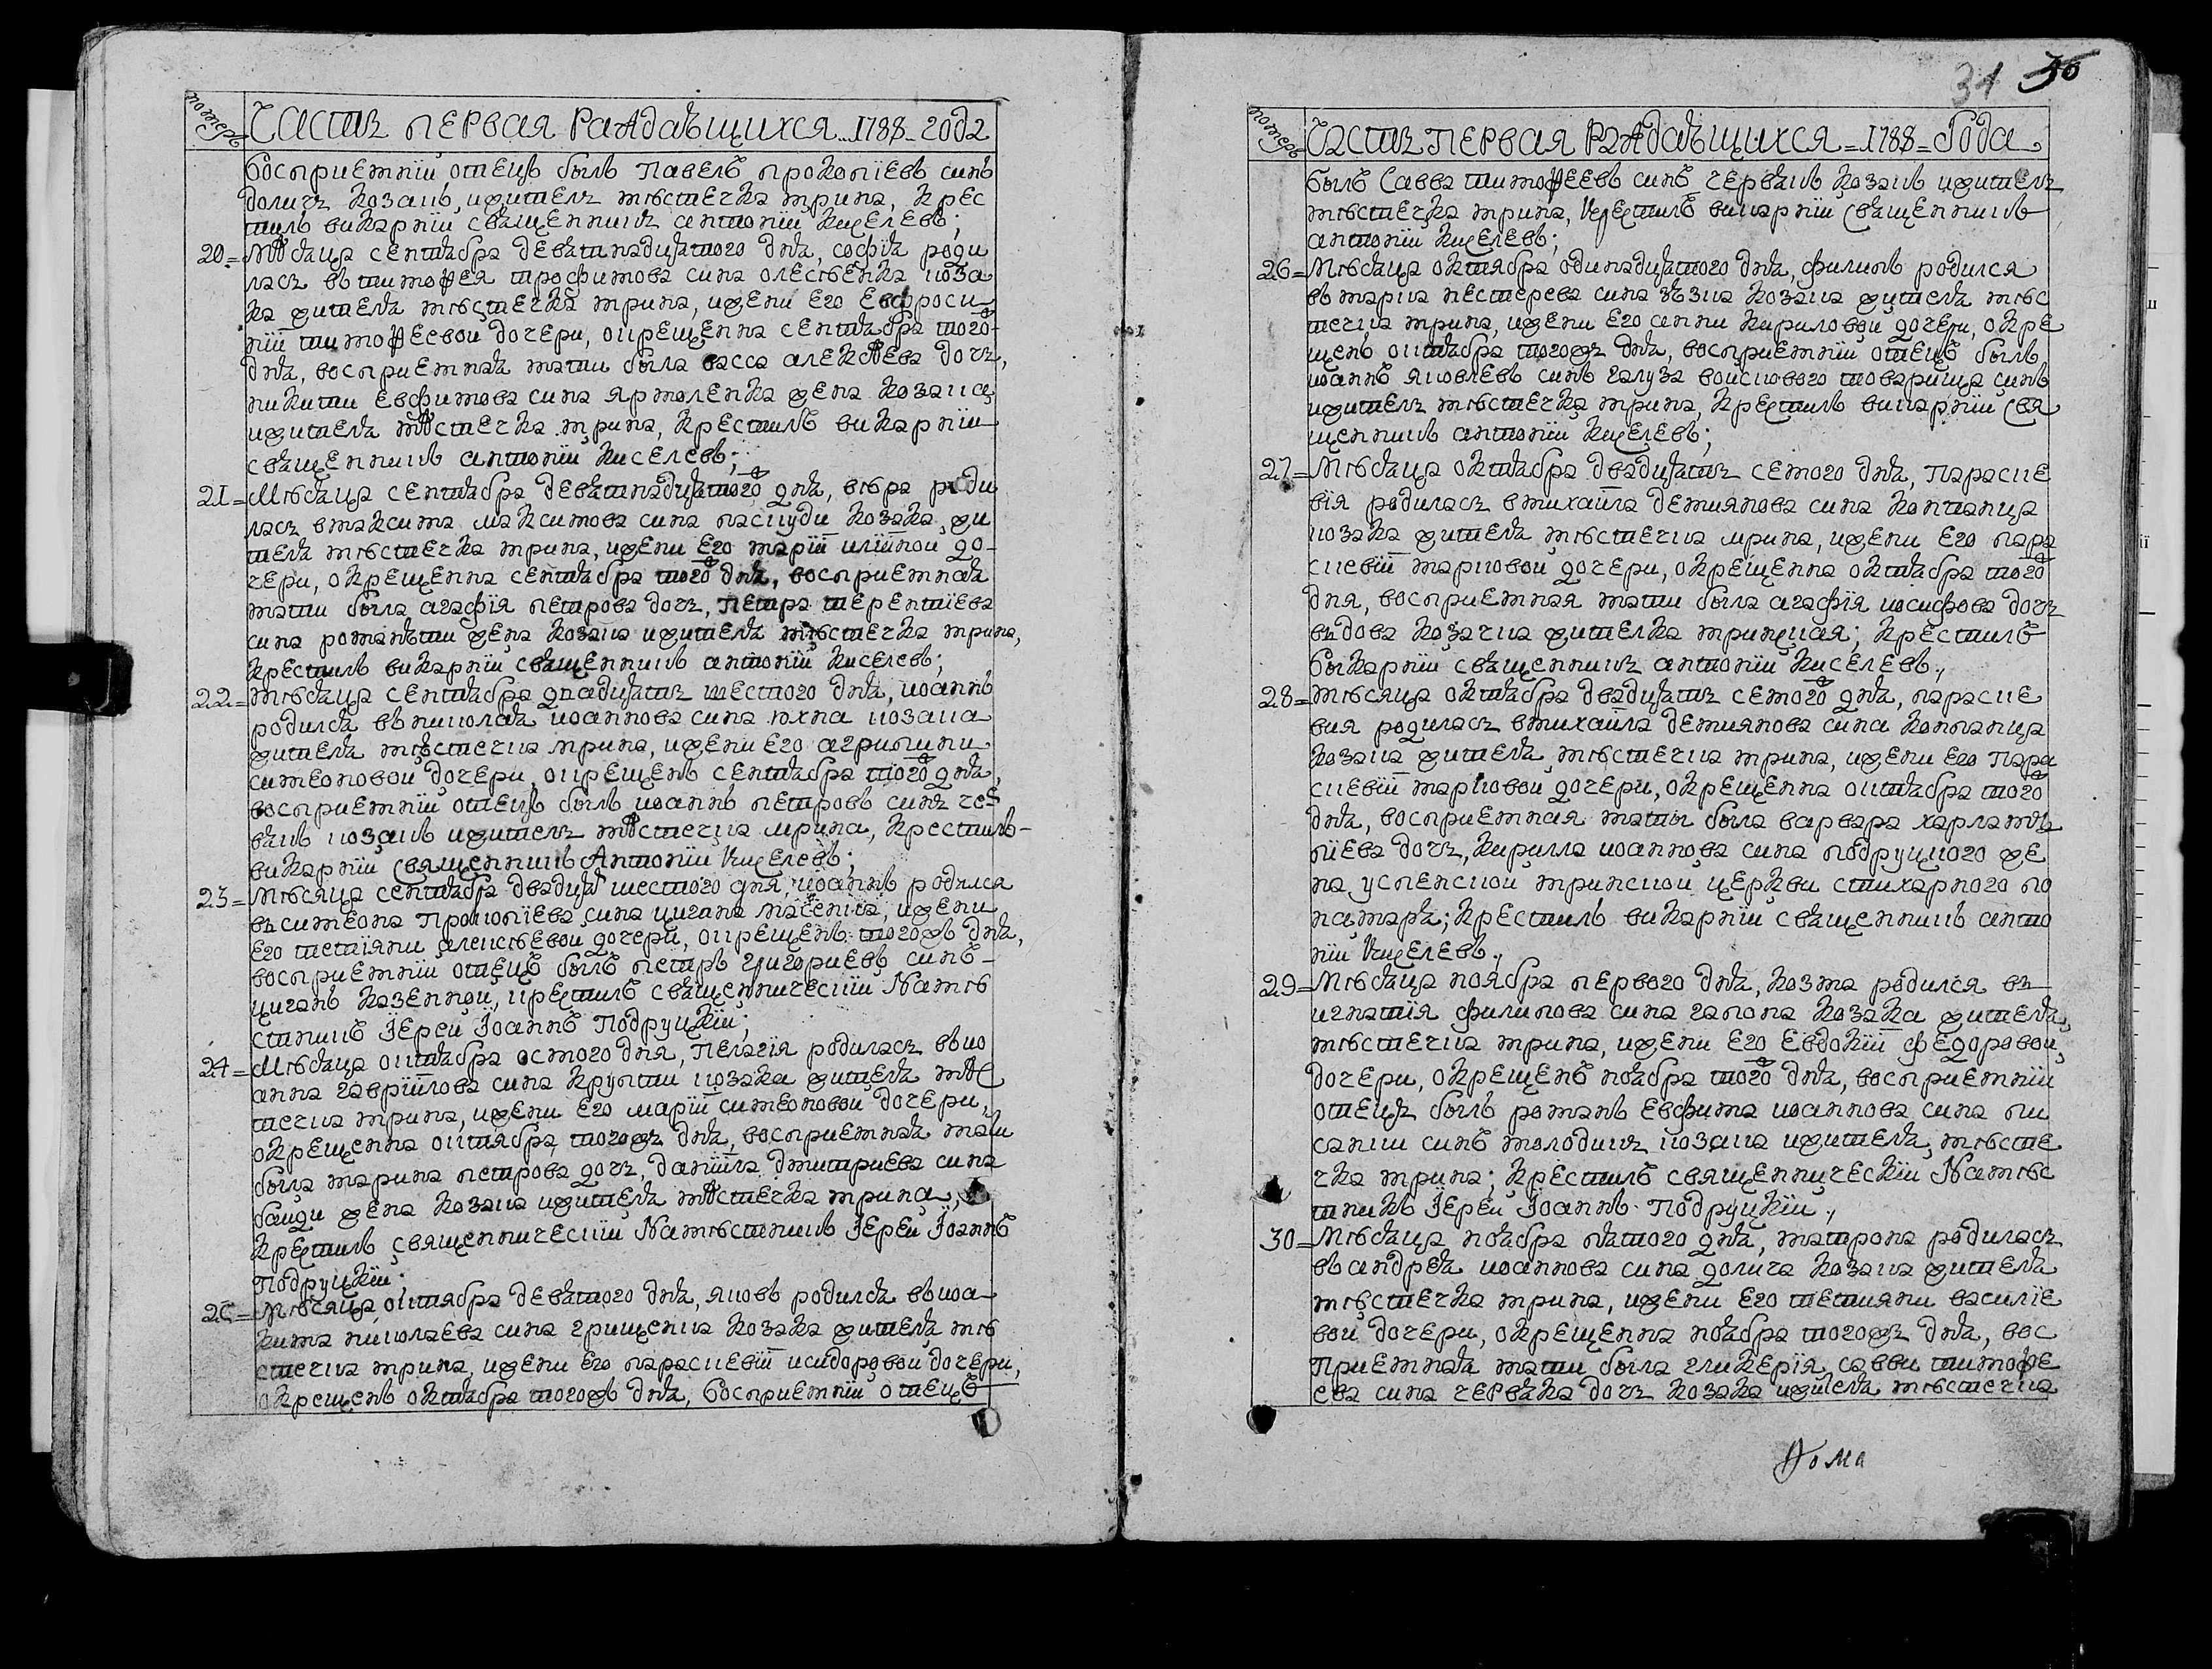 номеръ
Часть первая раждающихся 1788 года
восприемній отецъ былъ Павелъ прокопіевъ синъ
доличъ козакъ, ижитель мѣстечка мрина, Крес
тилъ викарній священникъ антоній Киселевъ;
20 = Мѣсяца сентября девятнадцатого дня, софія роди
лась въ тимофея трофимова сина олексѣенка коза
ка жителя мѣстечка мрина, ижени его евфроси
ніи тимофеевой дочери, окрещенна сентября того
дня, восприемная мати была васса алексѣева дочь,
никити евфимова сина ярмоленка жена козака
ижителя мѣстечка мрина, Крестилъ викарній
священникъ антоній Киселевъ;
21 = Мѣсяца сентября девятнадцатого дня, вѣра роди
лась вмаксима максимова сина паскуди козака, жи
теля мѣстечка мрина, ижени его маріи иліиной до
чери, окрещенна сентября того ж дня, восприемная
мати была агафія петрова дочь, петра терентіева
сина жена козака ижителя мѣстечка мрина,
Крестилъ викарній священникъ антоній Киселевъ;
22 = мѣсяца сентября двадцать шестого дня, иоаннъ
родился въ николая иоаннова сина юхна козака
жителя мѣстечка мрина, ижени его агрипини
симеоновой дочери, окрещенъ сентября того ж дня,
восприемній отецъ былъ иоаннъ петровъ синъ чер
вякъ козакъ ижитель мѣстечка мрина, Крестилъ
викарній священникъ Антоній Киселевъ;
23 = Мѣсяца сентября двадцать шестого дня, иоаннъ родился
въ симеона Прокопіева сина цигана, ижени
его тетіяни алексѣевой дочери, окрещенъ тогожъ дня,
восприемній отецъ былъ петръ григориевъ синъ
циганъ казенной, крестилъ священническій Намѣ
стникъ Іерей Іоаннъ Подруцкій;
24 = Мѣсяца октября осмого дня, Пелагія родилась въ ио
анна гавріилова сина крупти козака жителя мѣс
течка мрина, ижени его маріи симеоновой дочери,
окрещенна октября тогожъ дня, восприемная мати
была марина петрова дочь, даніила дмитриева сина
жена козака ижителя мѣстечка мрина,
Крестилъ священническій Намѣстникъ Іерей Іоаннъ
Подруцкій;
25 = Мѣсяца октября девятого дня, яковъ родился въ иоа
кима николаева сина грищенка козака жителя мѣ
стечка мрина, ижени его параскевіи исидоровой дочери,
окрещенъ октября тогожъ дня, восприемній отецъ
31 30
номеръ
Часть первая раждающихся = 1788 = Года
былъ Савва тимофеевъ синъ червякъ козакъ ижитель
мѣстечка мрина, Крестилъ викарній священникъ
антоній Киселевъ;
26 = Мѣсяца октября одинадцатого дня, филипъ родился
въ марка нестерева сина зѣзка козака жителя мѣс
течка мрина, ижени его анни Кириловой дочери, окре
щенъ октября тогожъ дня, восприемній отецъ былъ
иоаннъ яковлевъ синъ галуза войскового товарища синъ
ижитель мѣстечка мрина, Крестилъ викарній свя
щенникъ антоній Киселевъ;
27 = Мѣсяца октября двадцать семого дня, Параске
вія родилась вмихаила демиянова сина копланца
козака жителя мѣстечка мрина, ижени его пара
скевіи марковой дочери, окрещенна октября того ж
дня, восприемная мати была агафія иосифова дочь
въдова козачка жителка мринская; Крестилъ
викарній священникъ антоній Киселевъ.,
28 = мѣсяца октября двадцать семого дня, параске
вия родилась вмихаила демиянова сина копланца
козака жителя мѣстечка мрина, ижени его Пара
скевіи марковой дочери, окрещенна октября того ж
дня, восприемная мати была варвара харлам
піева дочь, Кирилла иоаннова сина подруцкого же
на, успенской мринской церкви стихарного по
намаря; Крестилъ викарній священникъ анто
ній Киселевъ.,
29 = Мѣсяца ноября первого дня, козма родился въ
игнатія филипова сина гапона козака жителя
мѣстечка мрина, ижени его Евдокіи федоровой
дочери, окрещенъ ноября того ж дня, восприемній
отецъ былъ романъ евфима иоаннова сина пи
санки синъ молодикъ козака ижителя мѣсте
чка мрина; Крестилъ священническій Намѣс
тникъ Іерей Іоаннъ Подруцкій.,
30 = Мѣсяца ноября пятого дня, матрона родилась
въ андрея иоаннова сина долича козака жителя
мѣстечка мрина, ижени его тетияни василіе
вой дочери, окрещенна ноября тогожъ дня, вос
Приемная мати была гликерія, савви тимофе
ева сина червяка дочь козака ижителя мѣстечка